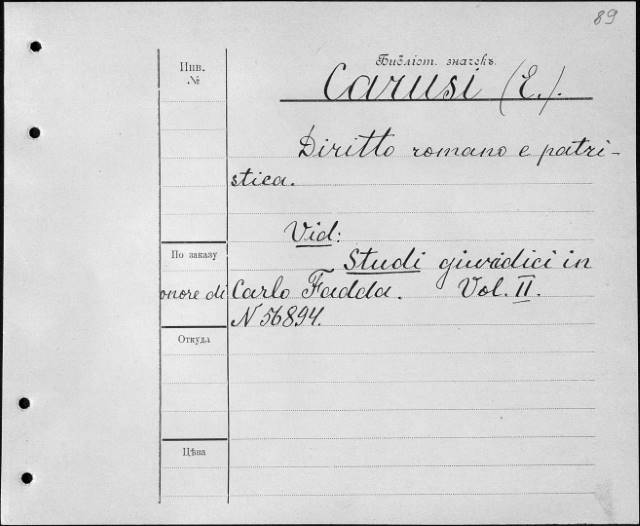 89
Инв.
№
Библіот. значекъ.
Carusi (E.).
Diritto romano e patri-
stica.
Vid:
По заказу
Studi giuridici in
onore di Carlo Fadda. Vol. II.
N 56894.
Откуда
Цѣна